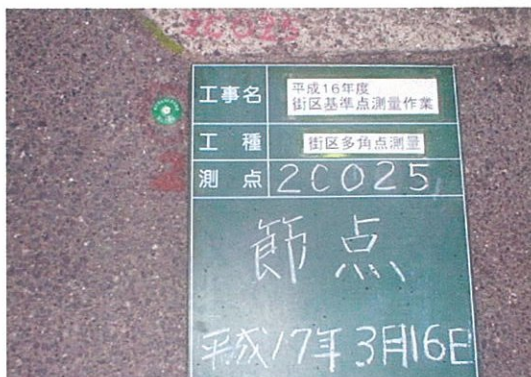 2C025
工事名
平成16年度
街区基準点測量作業
工種
街区多角点測量
測点
2C025
節点
平成17年3月16日